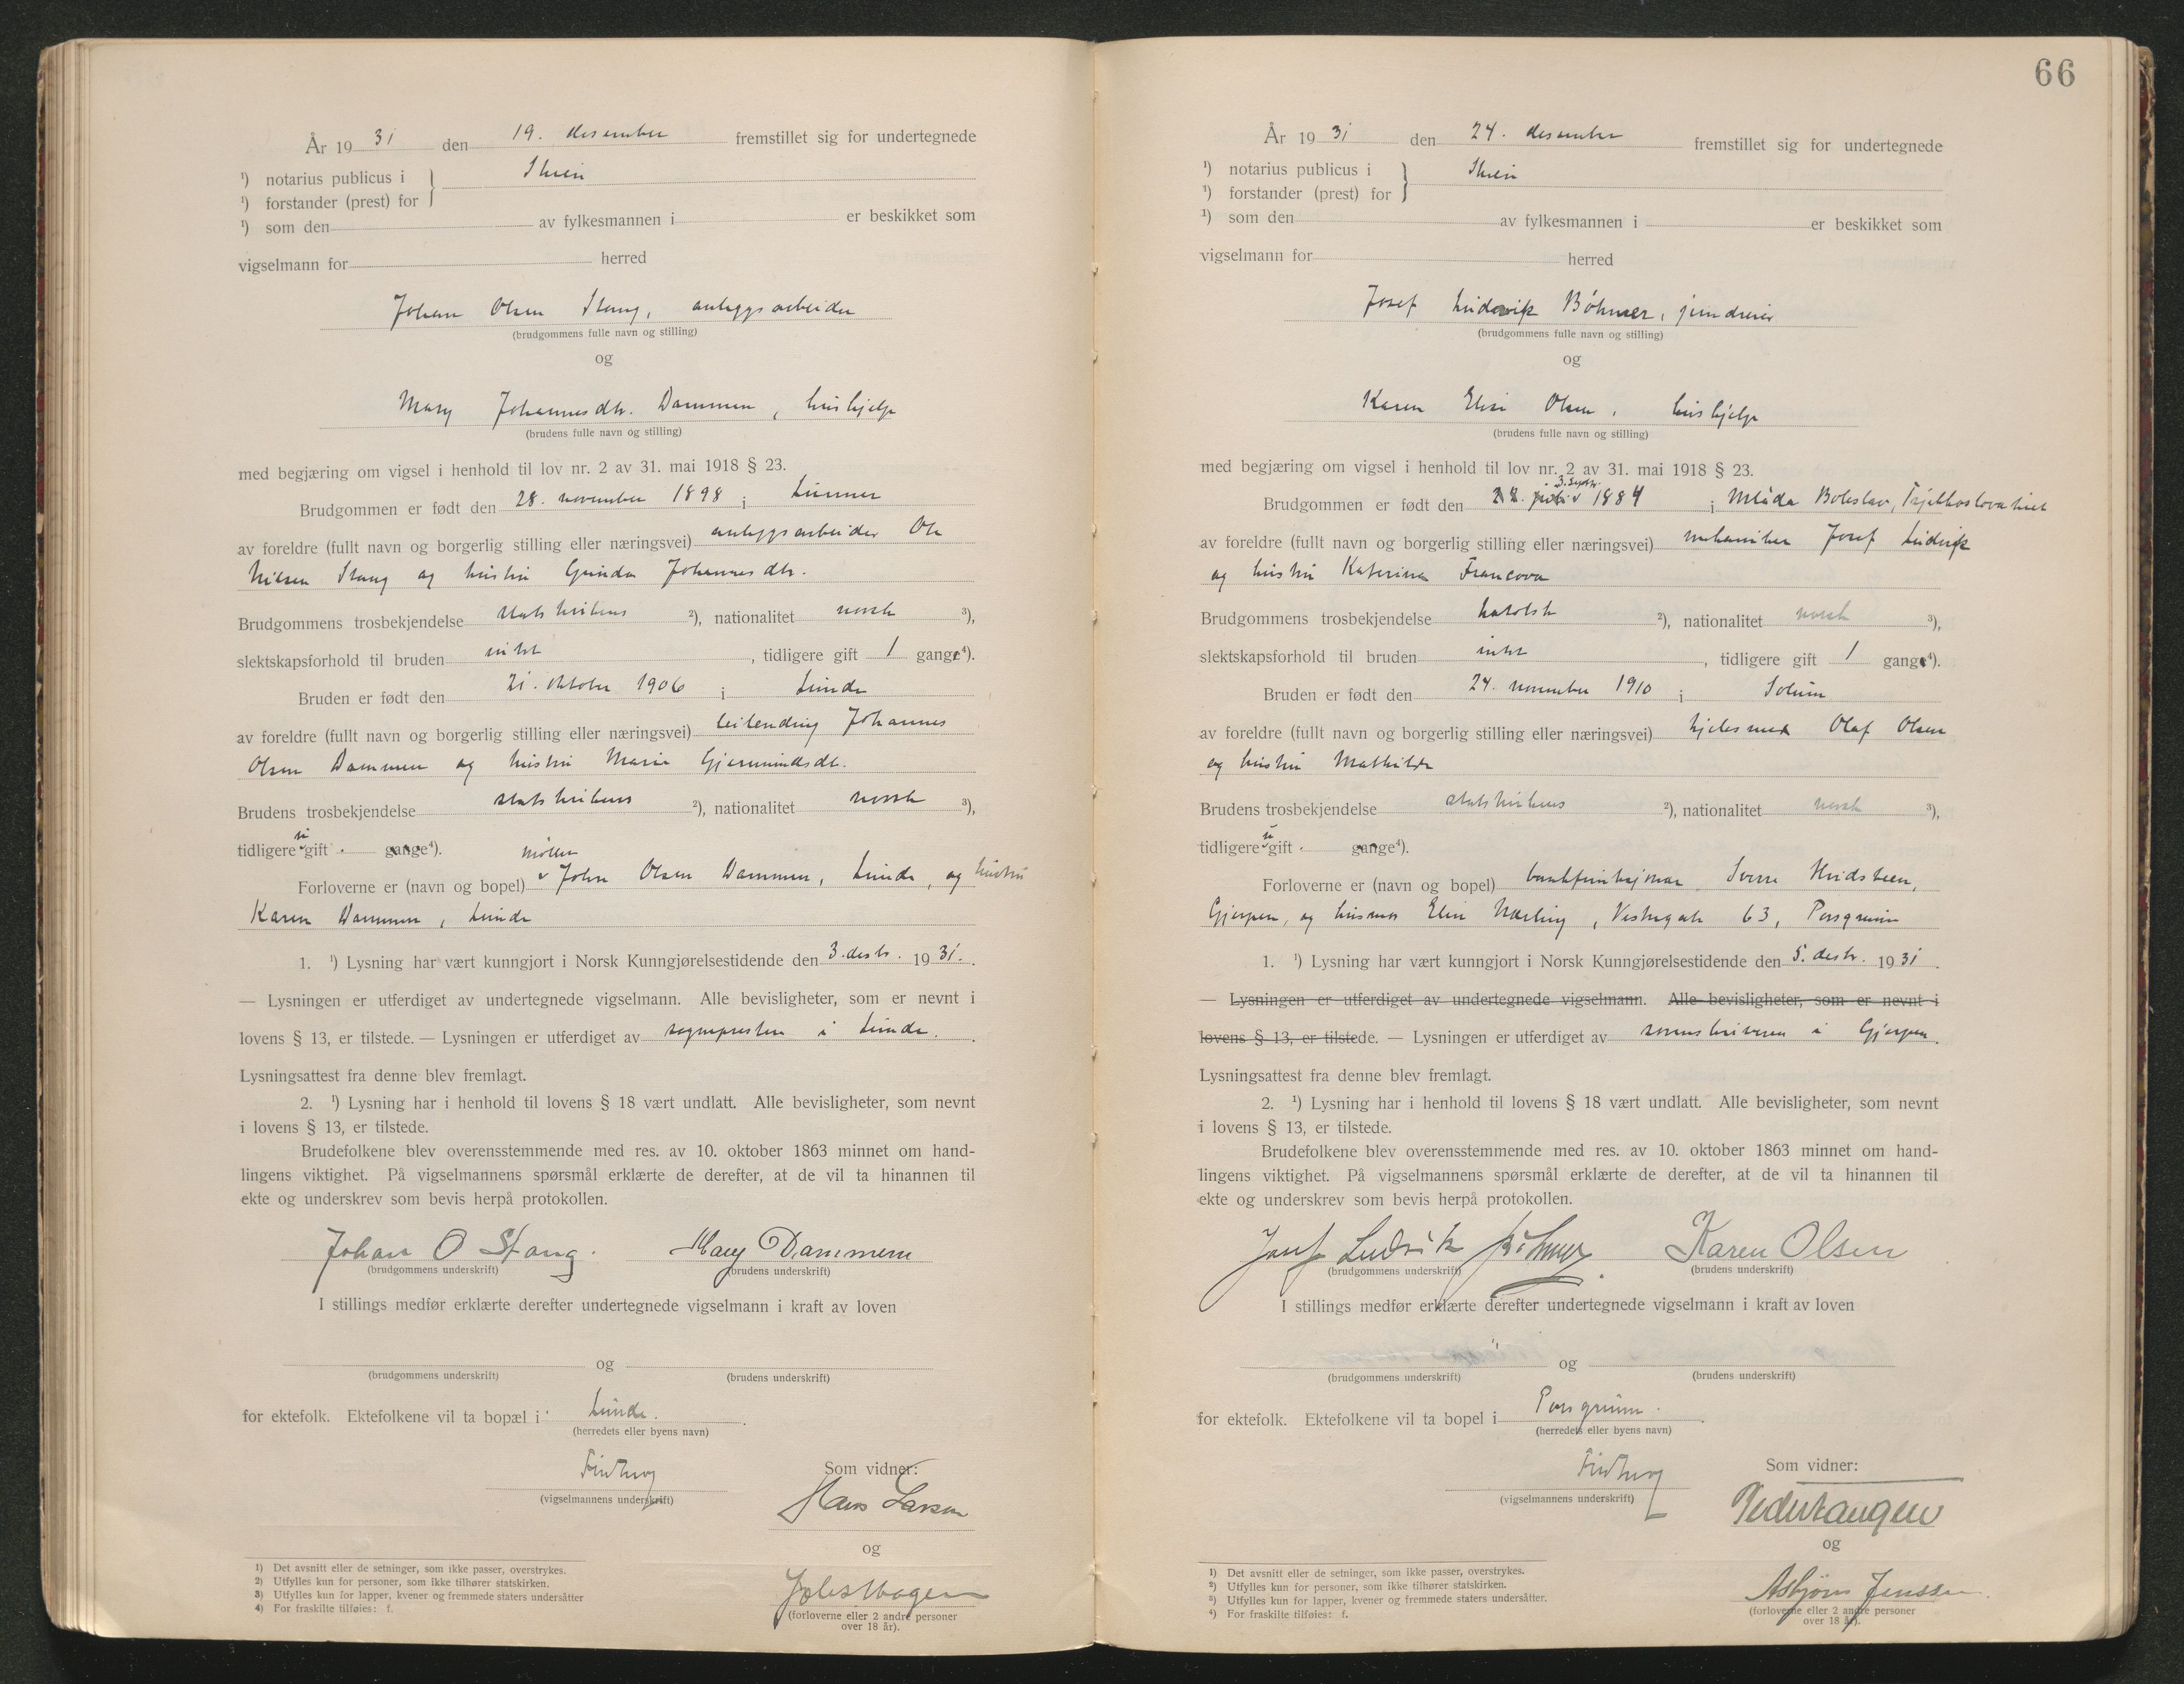 År 1931 den 19. desember fremstillet sig for undertegnede
¹) notarius publicus i } Skien
¹) forstander (prest) for
¹) som den av fylkesmannen i er beskikket som
vigselmann for herred
Johan Olsen Stang, anleggsarbeider
(brudgommens fulle navn og stilling)
og
Mary Johannesdtr. Dammen, hushjelp
(brudens fulle navn og stilling)
med begjæring om vigsel i henhold til lov nr. 2 av 31. mai 1918 § 23.
Brudgommen er født den 28. november 1898 i Lunner
av foreldre (fullt navn og borgerlig stilling eller næringsvei) anleggsarbeider Ole
Nilsen Stang og hustru Gunda Johannesdtr.
Brudgommens trosbekjendelse statskirkens ²), nationalitet norsk ³),
slektskapsforhold til bruden intet, tidligere gift 1 gang⁴).
Bruden er født den 21. oktober 1906 i Lunde
av foreldre (fullt navn og borgerlig stilling eller næringsvei) leilending Johannes
Olsen Dammen og hustru Marie Gjermundsdtr.
Brudens trosbekjendelse statskirkens ²), nationalitet norsk ³),
tidligere ei gift gange⁴).
Forloverne er (navn og bopel) møller John Olsen Dammen, Lunde, og hustru
Karen Dammen, Lunde
1. ¹) Lysning har vært kunngjort i Norsk Kunngjørelsestidende den 3. desbr. 1931.
— Lysningen er utferdiget av undertegnede vigselmann. Alle bevisligheter, som er nevnt i
lovens § 13, er tilstede. — Lysningen er utferdiget av sognepresten i Lunde.
Lysningsattest fra denne blev fremlagt.
2. ¹) Lysning har i henhold til lovens § 18 vært undlatt. Alle bevisligheter, som nevnt
i lovens § 13, er tilstede.
Brudefolkene blev overensstemmende med res. av 10. oktober 1863 minnet om hand-
lingens viktighet. På vigselmannens spørsmål erklærte de derefter, at de vil ta hinannen til
ekte og underskrev som bevis herpå protokollen.
Johan O Stang. Mary Dammen
(brudgommens underskrift) (brudens underskrift)
I stillings medfør erklærte derefter undertegnede vigselmann i kraft av loven
og
(brudgommens underskrift) (brudens underskrift)
for ektefolk. Ektefolkene vil ta bopæl i Lunde.
(herredets eller byens navn)
Som vidner:
(vigselmannens underskrift)
Hans Larsen
og
(forloverne eller 2 andre personer
over 18 år).
1) Det avsnitt eller de setninger, som ikke passer, overstrykes.
2) Utfylles kun for personer, som ikke tilhører statskirken.
3) Utfylles kun for lapper, kvener og fremmede staters undersåtter
4) For fraskilte tilføies: f.
66
År 1931 den 24. desember fremstillet sig for undertegnede
¹) notarius publicus i } Skien
¹) forstander (prest) for
¹) som den av fylkesmannen i er beskikket som
vigselmann for herred
Josef Ludovik Böhmer, jerndreier
(brudgommens fulle navn og stilling)
og
Karen Elise Olsen, hushjelp
(brudens fulle navn og stilling)
med begjæring om vigsel i henhold til lov nr. 2 av 31. mai 1918 § 23.
3. septbr.
Brudgommen er født den 1884 i Mlada Boleslav, Tsjekkoslovakiet
av foreldre (fullt navn og borgerlig stilling eller næringsvei) mekaniker Josef Ludvik
og hustru Katerina Francova
Brudgommens trosbekjendelse katolsk ²), nationalitet norsk ³),
slektskapsforhold til bruden intet, tidligere gift 1 gang⁴).
Bruden er født den 24. november 1910 i Solum
av foreldre (fullt navn og borgerlig stilling eller næringsvei) kjelesmed Olaf Olsen
og hustru Mathilde
Brudens trosbekjendelse statskirkens ²), nationalitet norsk ³),
tidligere ei gift gange⁴).
Forloverne er (navn og bopel) bankfunksjonær Sverre Kvidsteen,
Gjerpen, og husmor Elin Nærling, Vestregate 63, Porsgrunn
1. ¹) Lysning har vært kunngjort i Norsk Kunngjørelsestidende den 5. desbr. 1931.
— Lysningen er utferdiget av undertegnede vigselmann. Alle bevisligheter, som er nevnt i
lovens § 13, er tilstede. — Lysningen er utferdiget av sorenskriveren i Gjerpen.
Lysningsattest fra denne blev fremlagt.
2. ¹) Lysning har i henhold til lovens § 18 vært undlatt. Alle bevisligheter, som nevnt
i lovens § 13, er tilstede.
Brudefolkene blev overensstemmende med res. av 10. oktober 1863 minnet om hand-
lingens viktighet. På vigselmannens spørsmål erklærte de derefter, at de vil ta hinannen til
ekte og underskrev som bevis herpå protokollen.
Josef Ludvik Böhmer. Karen Olsen
(brudgommens underskrift) (brudens underskrift)
I stillings medfør erklærte derefter undertegnede vigselmann i kraft av loven
og
(brudgommens underskrift) (brudens underskrift)
for ektefolk. Ektefolkene vil ta bopel i Porsgrunn.
(herredets eller byens navn)
Som vidner:
(vigselmannens underskrift)
og
Asbjørn Jenssen
(forloverne eller 2 andre personer
over 18 år).
¹) Det avsnitt eller de setninger, som ikke passer, overstrykes.
²) Utfylles kun for personer, som ikke tilhører statskirken.
³) Utfylles kun for lapper, kvener og fremmede staters undersåtter.
⁴) For fraskilte tilføies: f.